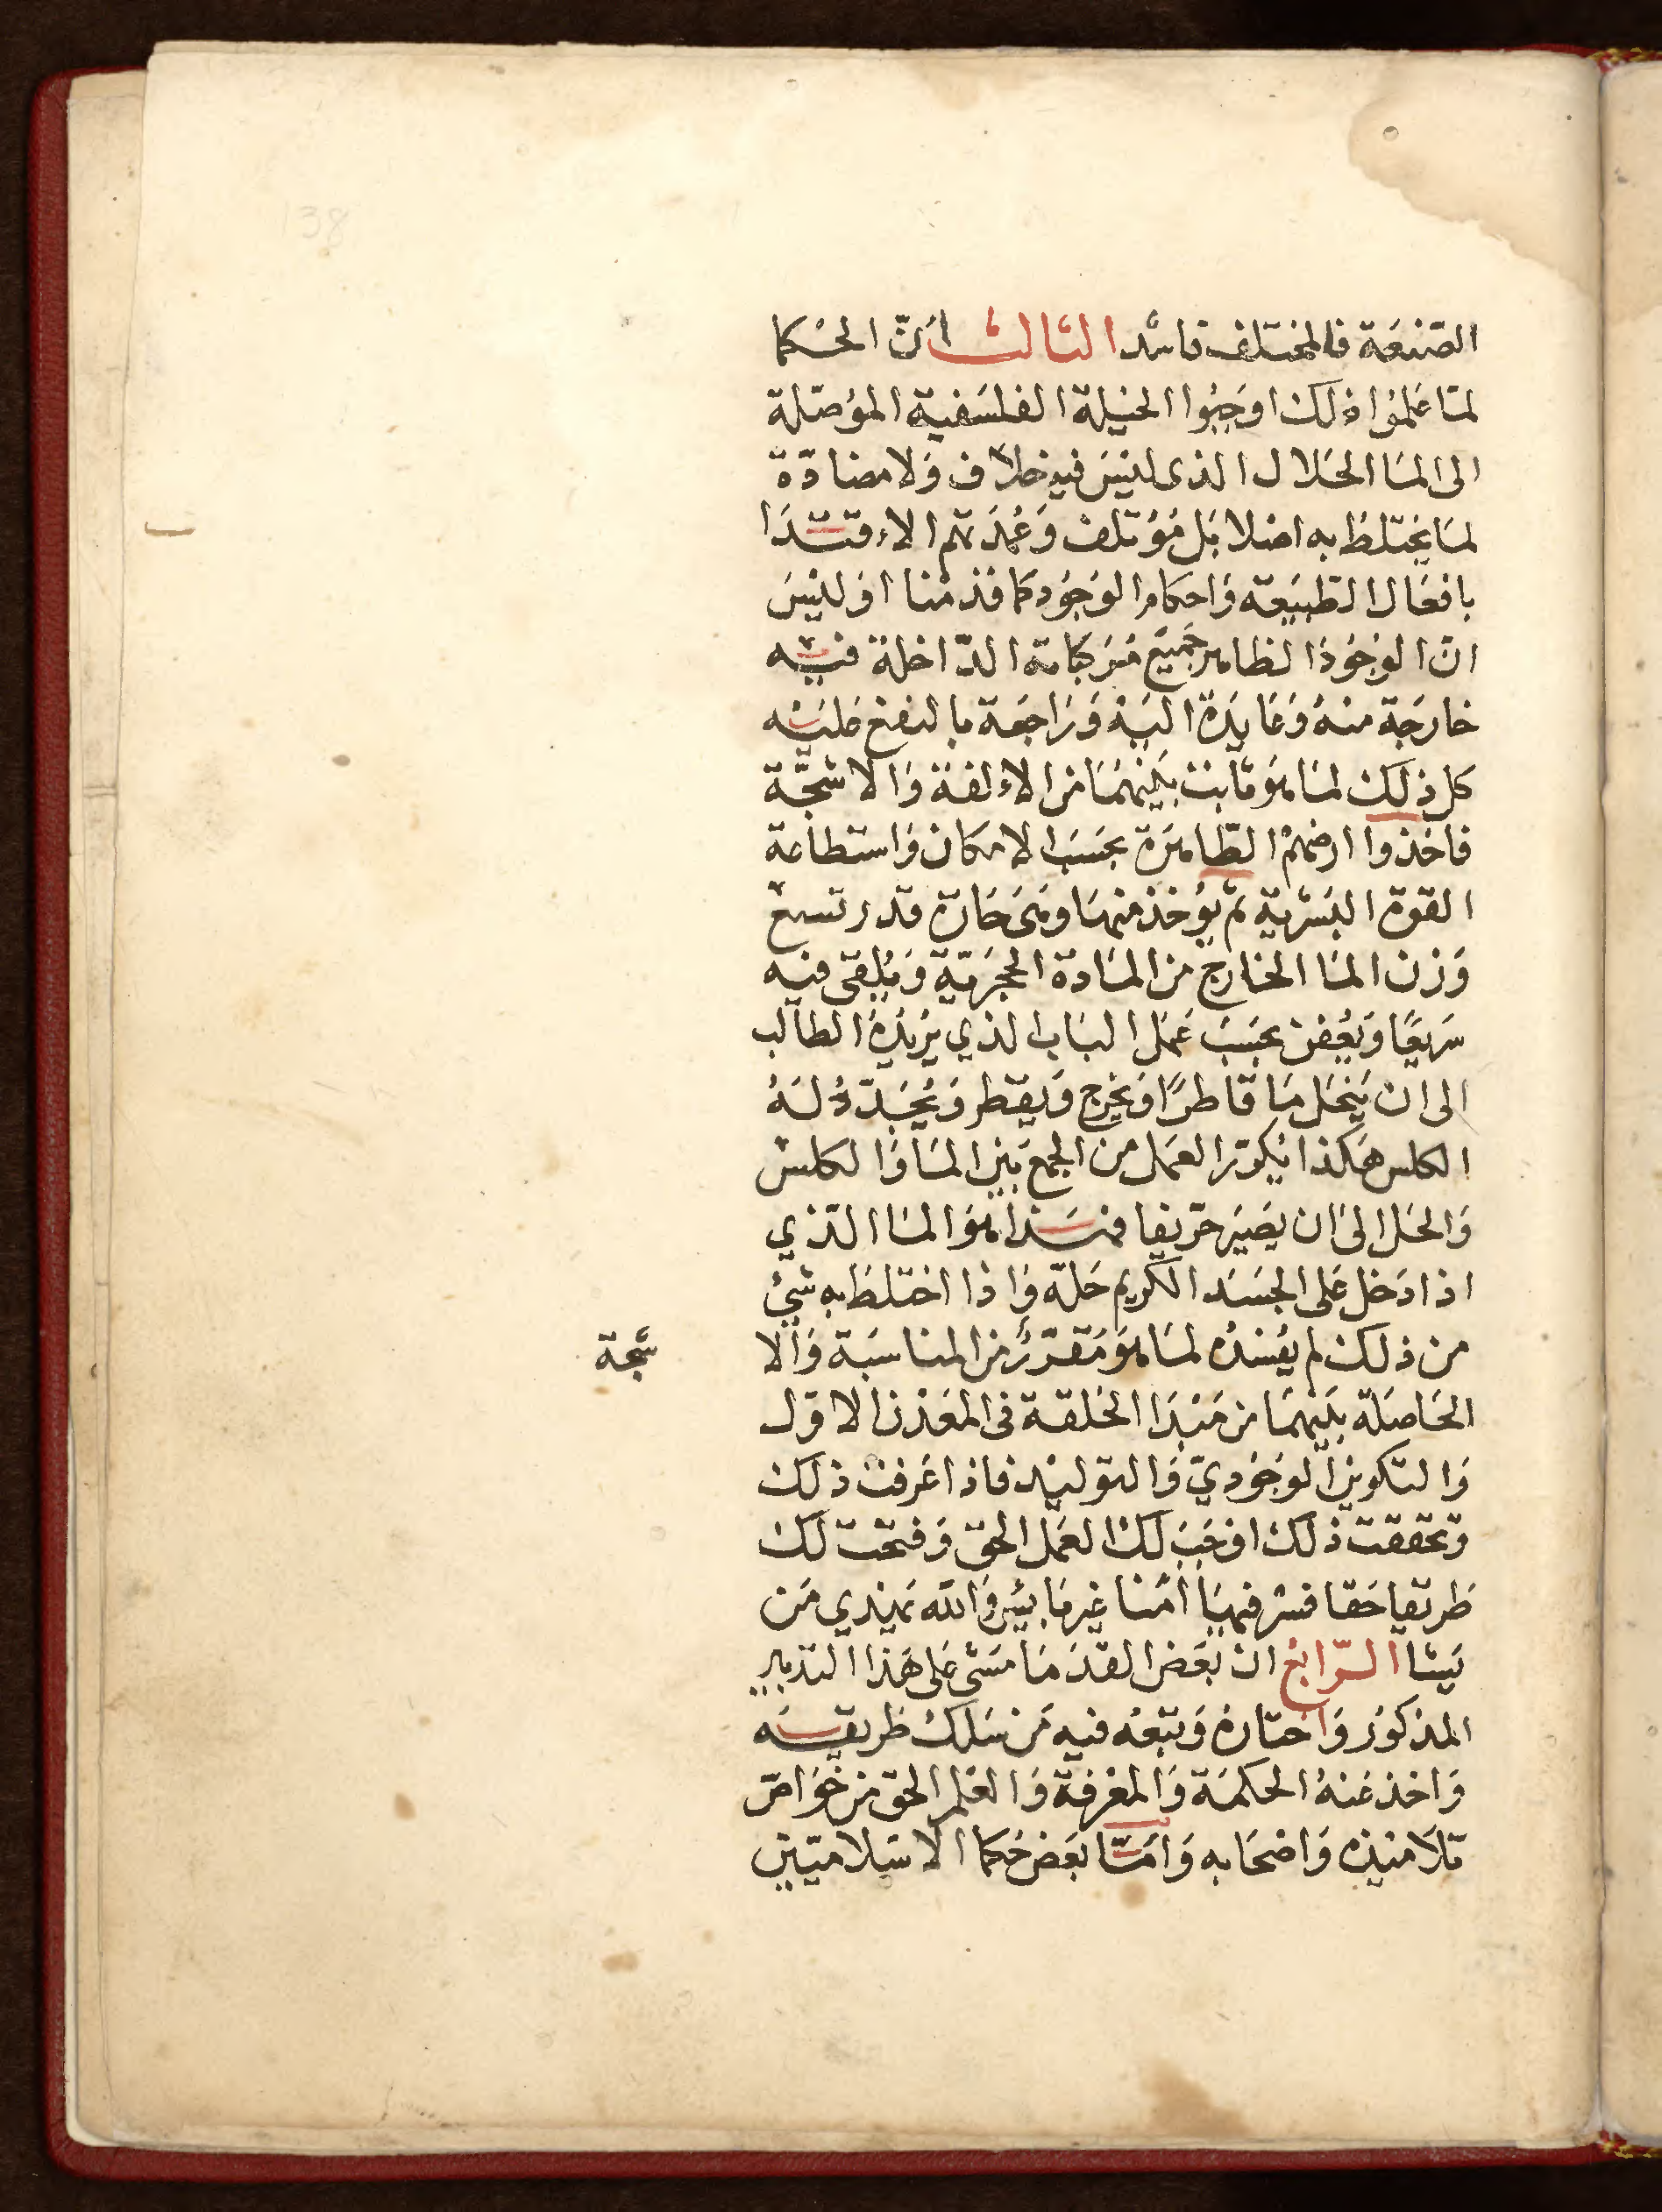 الصّنعَة فالمختلف فاسد الثالث انّ الحكما
لمّا عَلموا ذلك اوجَبُوا الحيلة الفلسَفية الموُصّلة
الى المَا الحَلال الذى ليسَ فيه خلاف وَلا مضادّة
لمَا يختلطُ به اصْلا بَل مؤتلف وَعُمدَتهم الاِقتدَا
بافعَال الطّبيعَة وَاحكام الوُجُود كما قدمْنا اوَليْسَ
انّ الوُجُودَ الظاهر جَميع مُتركباته الدّاخلة فيه
خارجَة منهُ وَعَايدَة اليَه وَرَاجعَة بالنفع عَليَه
كل ذلك لمَا هوَ ثابت بَينهمَا من الاِلفة وَالاشجّة
فاخَذوا ارضهمْ الطّاهرَة بحسَب الامكان وَاستطاعَة
القوة البَشرية ثم يؤخذ منهَا وهَى حَارة قدر تسع
وَزن المَا الخارج من المَادة الحجرَيّة وَيُلقى فيه
سَريعًا وَيُعفن بحسَب عَمَل البَاب الذي يُريدُهُ الطالب
الى ان يَنحَل مَا قاطرًا وَيخرج وَيقطر وَيُجَدّدُ لهُ
الكلس هَكذا يُكرّر العمَل من الجمع بَين المَا وَالكلس
وَالحَل الى ان يَصيَر حرّيفا فهَذا هوَ المَا الّذي
اذا دَخل عَلى الجسَد الكريم حَلّه وَاذا اختلط به شيْ
من ذلك لم يفسُدُه لمَا هوَ مُقرّر من المناسَبَة وَالا
شجة
الحَاصَلة بَينهمَا من مَبْدَا الخلقة فى المعَدن الاوّل
وَالتكوين الوجُوديّ وَالتوليْد فاذا عَرفت ذلك
وتحققت ذلك اوجَبَ لك العمَل الحق وَفتحت لك
طريقا حَقا فسْر فيهَا امنا غير هَايب وَالله يَهْدي مَن
يَشا الرّابعْ ان بَعَض القدَمَا مَشى عَلى هَذا التدبير
المذكوُر وَاختارهُ وَتبعَه فيه مَن سَلك طريقه
وَاخذ عَنهُ الحكمَة وَالمعْرفة وَالعْلم الحق من خوَاصّ
تلاَميذه وَاصْحَابه وَامّا بَعَض حُكما الاسْلاميّين